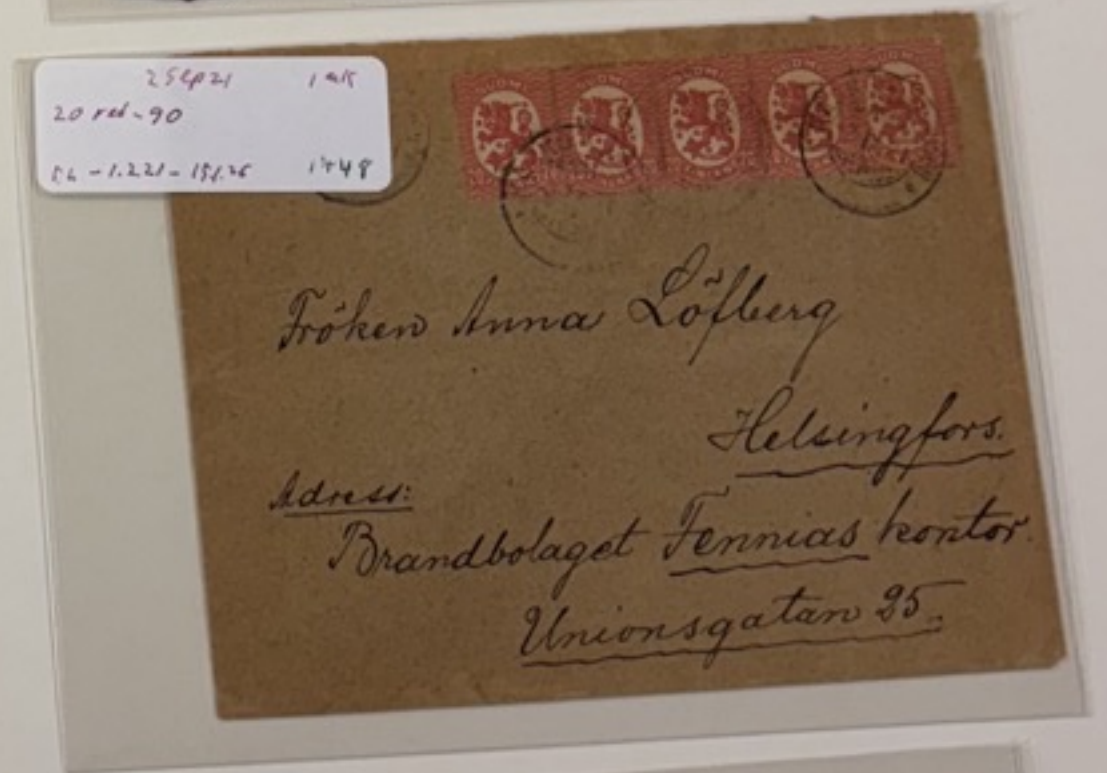 25ep21 1 mk
20 red - 90
- 1.2.21 - 1748
Fröken Anna Löfberg
Helsingfors.
Adress:
Brandbolaget Fennias kontor.
Unionsgatan 25.